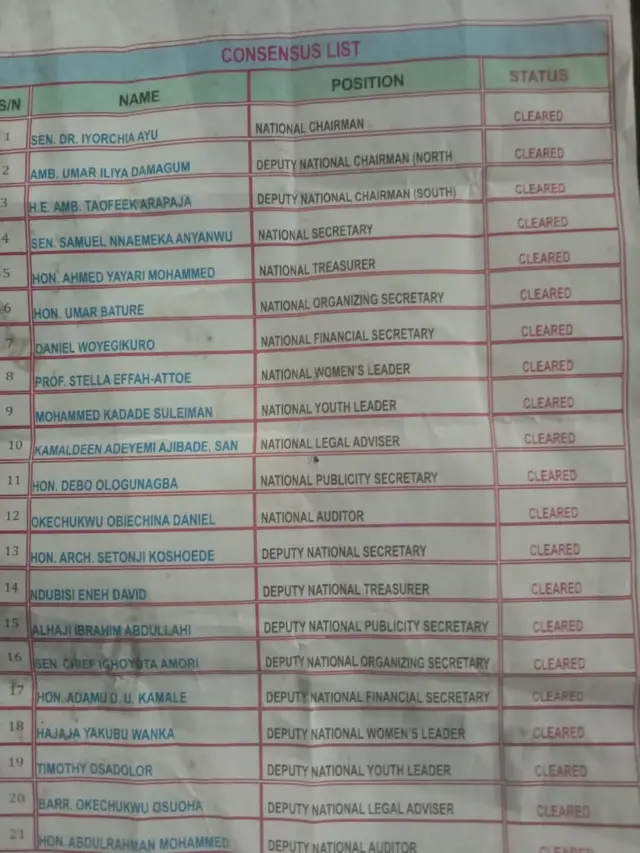 CONSENSUS LIST
S/N NAME POSITION STATUS
1 SEN. DR. IYORCHIA AYU NATIONAL CHAIRMAN CLEARED
2 AMB. UMAR ILIYA DAMAGUM DEPUTY NATIONAL CHAIRMAN (NORTH CLEARED
3 H.E. AMB. TAOFEEK ARAPAJA DEPUTY NATIONAL CHAIRMAN (SOUTH) CLEARED
4 SEN. SAMUEL NNAEMEKA ANYANWU NATIONAL SECRETARY CLEARED
5 HON. AHMED YAYARI MOHAMMED NATIONAL TREASURER CLEARED
6 HON. UMAR BATURE NATIONAL ORGANIZING SECRETARY CLEARED
7 DANIEL WOYEGIKURO NATIONAL FINANCIAL SECRETARY CLEARED
8 PROF. STELLA EFFAH-ATTOE NATIONAL WOMEN'S LEADER CLEARED
9 MOHAMMED KADADE SULEIMAN NATIONAL YOUTH LEADER CLEARED
10 KAMALDEEN ADEYEMI AJIBADE, SAN NATIONAL LEGAL ADVISER CLEARED
11 HON. DEBO OLOGUNAGBA NATIONAL PUBLICITY SECRETARY CLEARED
12 OKECHUKWU OBIECHINA DANIEL NATIONAL AUDITOR CLEARED
13 HON. ARCH. SETONJI KOSHOEDE DEPUTY NATIONAL SECRETARY CLEARED
14 NDUBISI ENEH DAVID DEPUTY NATIONAL TREASURER CLEARED
15 ALHAJI IBRAHIM ABDULLAHI DEPUTY NATIONAL PUBLICITY SECRETARY CLEARED
16 SEN. CHIEF IGHOYOTA AMORI DEPUTY NATIONAL ORGANIZING SECRETARY CLEARED
17 HON. ADAMU D. U. KAMALE DEPUTY NATIONAL FINANCIAL SECRETARY CLEARED
18 HAJAJA YAKUBU WANKA DEPUTY NATIONAL WOMEN'S LEADER CLEARED
19 TIMOTHY OSADOLOR DEPUTY NATIONAL YOUTH LEADER CLEARED
20 BARR. OKECHUKWU OSUOHA DEPUTY NATIONAL LEGAL ADVISER CLEARED
21 HON. ABDULRAHMAN MOHAMMED DEPUTY NATIONAL AUDITOR CLEARED